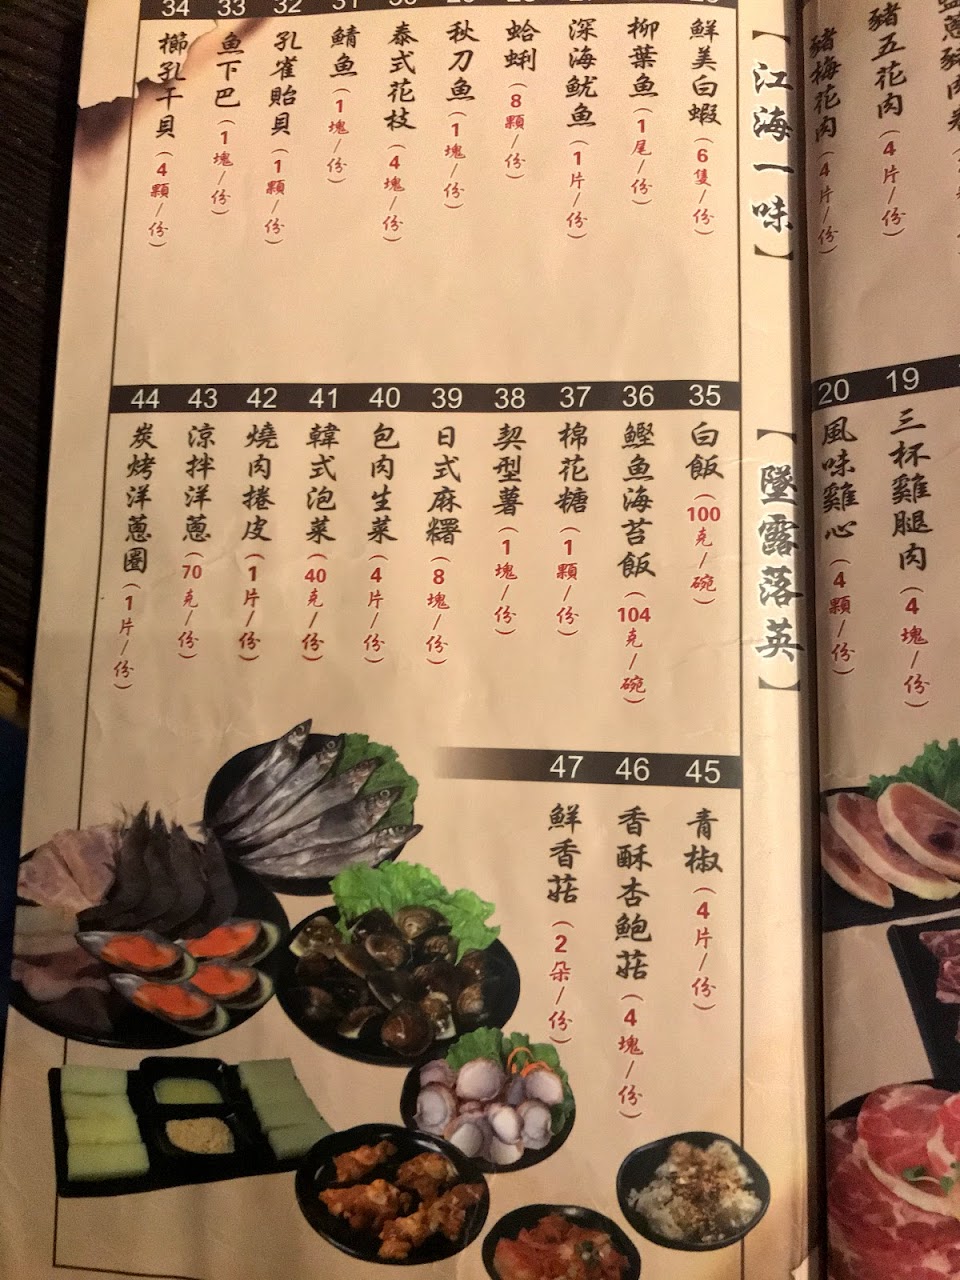 豬五花肉（4片/份）
豬梅花肉（4片/份）
19
三杯雞腿肉（4塊/份）
20
風味雞心（4顆/份）
【江海一味】
鮮美白蝦（6隻/份）
柳葉魚（1尾/份）
深海魷魚（1片/份）
蛤蜊（8顆/份）
秋刀魚（1塊/份）
泰式花枝（4塊/份）
31
鯖魚（1塊/份）
32
孔雀貽貝（1顆/份）
33
魚下巴（1塊/份）
34
櫛孔干貝（4顆/份）
【墜露落英】
35
白飯（100克/碗）
36
鰹魚海苔飯（104克/碗）
37
棉花糖（1顆/份）
38
契型薯（1塊/份）
39
日式麻糬（8塊/份）
40
包肉生菜（4片/份）
41
韓式泡菜（40克/份）
42
燒肉捲皮（1片/份）
43
涼拌洋蔥（70克/份）
44
炭烤洋蔥圈（1片/份）
45
青椒（4片/份）
46
香酥杏鮑菇（4塊/份）
47
鮮香菇（2朵/份）